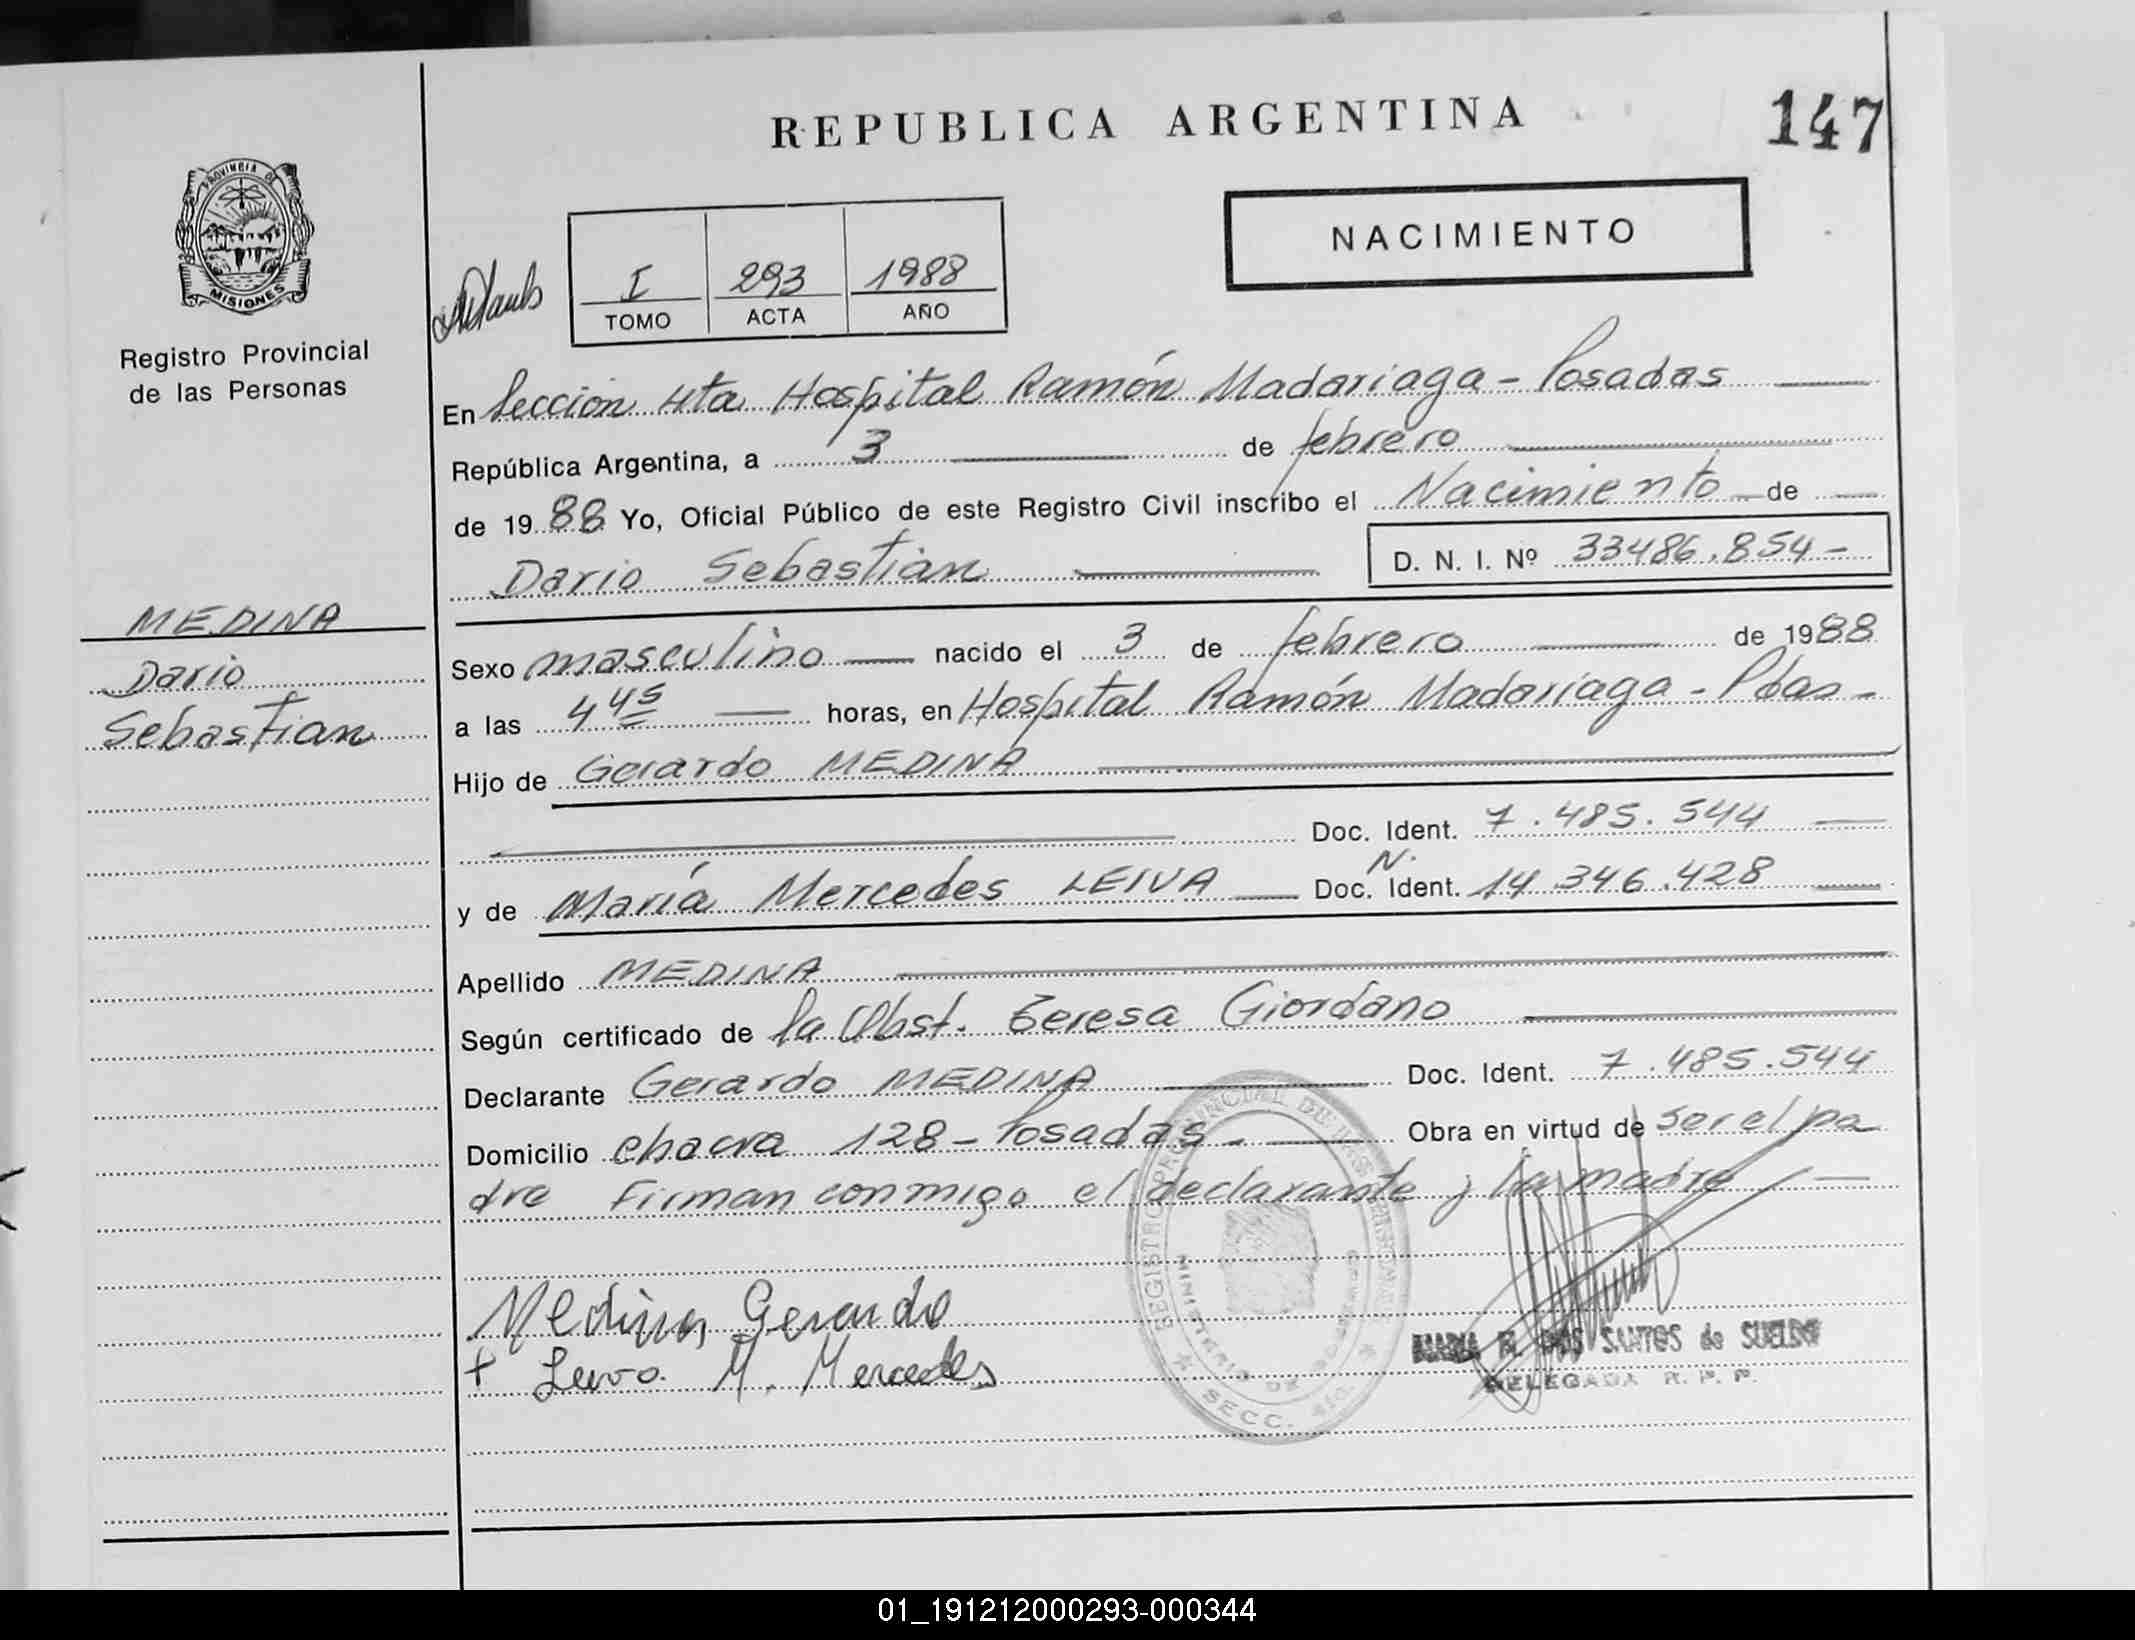 REPUBLICA ARGENTINA
147
NACIMIENTO
PROVINCIA DE
MISIONES
Registro Provincial
de las Personas
I 293 1988
TOMO ACTA AÑO
En Sección 4ta Hospital Ramón Madariaga - Posadas
República Argentina, a 3 de febrero
de 1988 Yo, Oficial Público de este Registro Civil inscribo el Nacimiento de
Dario Sebastian D. N. I. Nº 33486.854-
MEDINA
Dario
Sebastian
Sexo masculino nacido el 3 de febrero de 1988
a las 4 45 horas, en Hospital Ramón Madariaga - Pdas -
Hijo de Gerardo MEDINA
Doc. Ident. 7.485.544
N.
y de María Mercedes LEIVA Doc. Ident. 14.346.428
Apellido MEDINA
Según certificado de la Obst. Teresa Giordano
Declarante Gerardo MEDINA Doc. Ident. 7.485.544
Domicilio chacra 128 - Posadas - Obra en virtud de ser el pa
dre Firman conmigo el declarante y la madre
Medina, Gerardo
+ Leiva M. Mercedes
REGISTRO PROVINCIAL DE LAS PERSONAS
MINISTERIO DE GOBIERNO
SECC. 4ta.
MARIA DOS SANTOS de SUELDO
DELEGADA R. P. P.
01_191212000293-000344